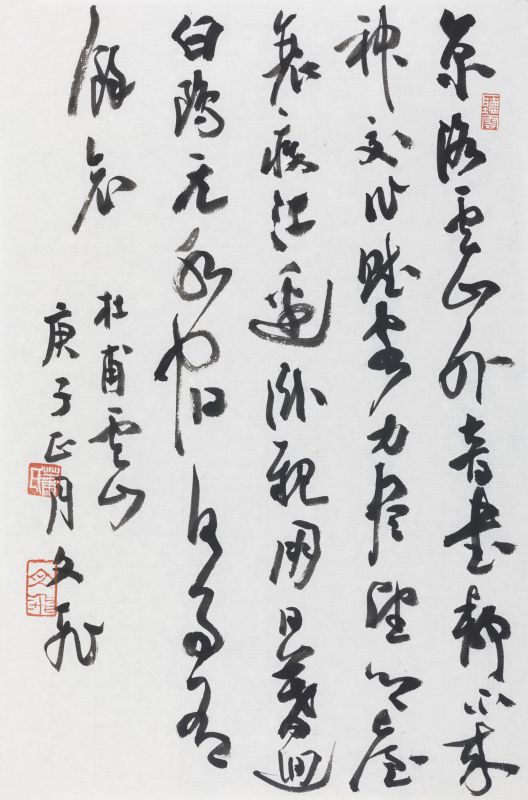 京洛雲山外音書靜不來
神交作賦客力盡望鄉臺
衰疾江邊臥親朋日暮迴
白鷗元水宿何事有
餘哀
杜甫雲山
庚子正月文飛